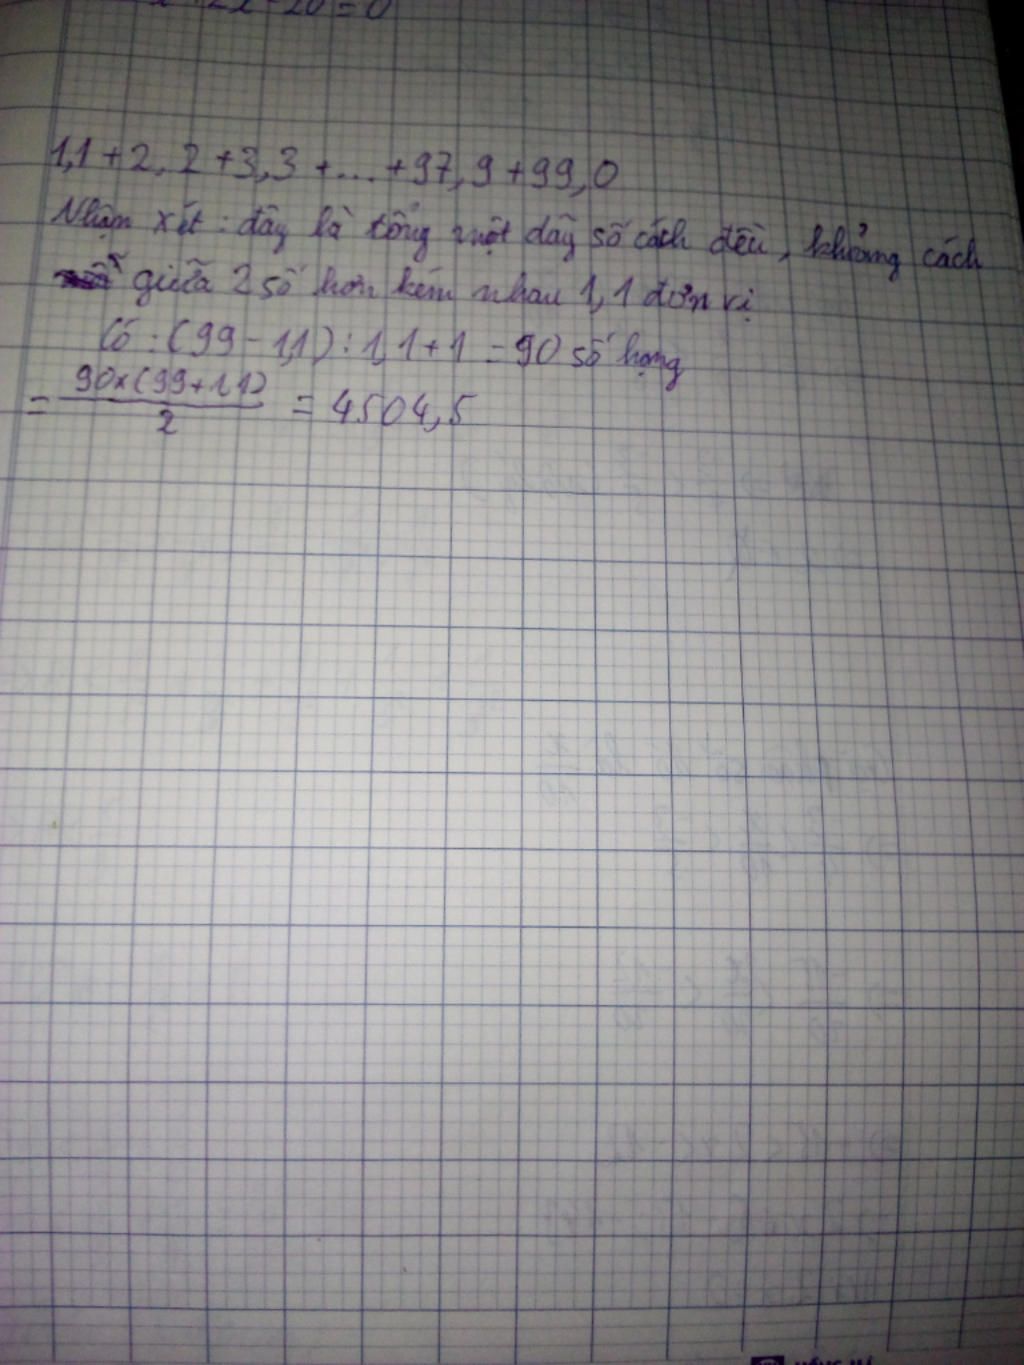 +2x-20=0
1,1+2,2+3,3+...+97,9+99,0
Nhận xét: đây là tổng một dãy số cách đều, khoảng cách
giữa 2 số hơn kém nhau 1,1 đơn vị
Có: (99-1,1):1,1+1=90 số hạng
= 90x(99+1,1)/2 = 4504,5